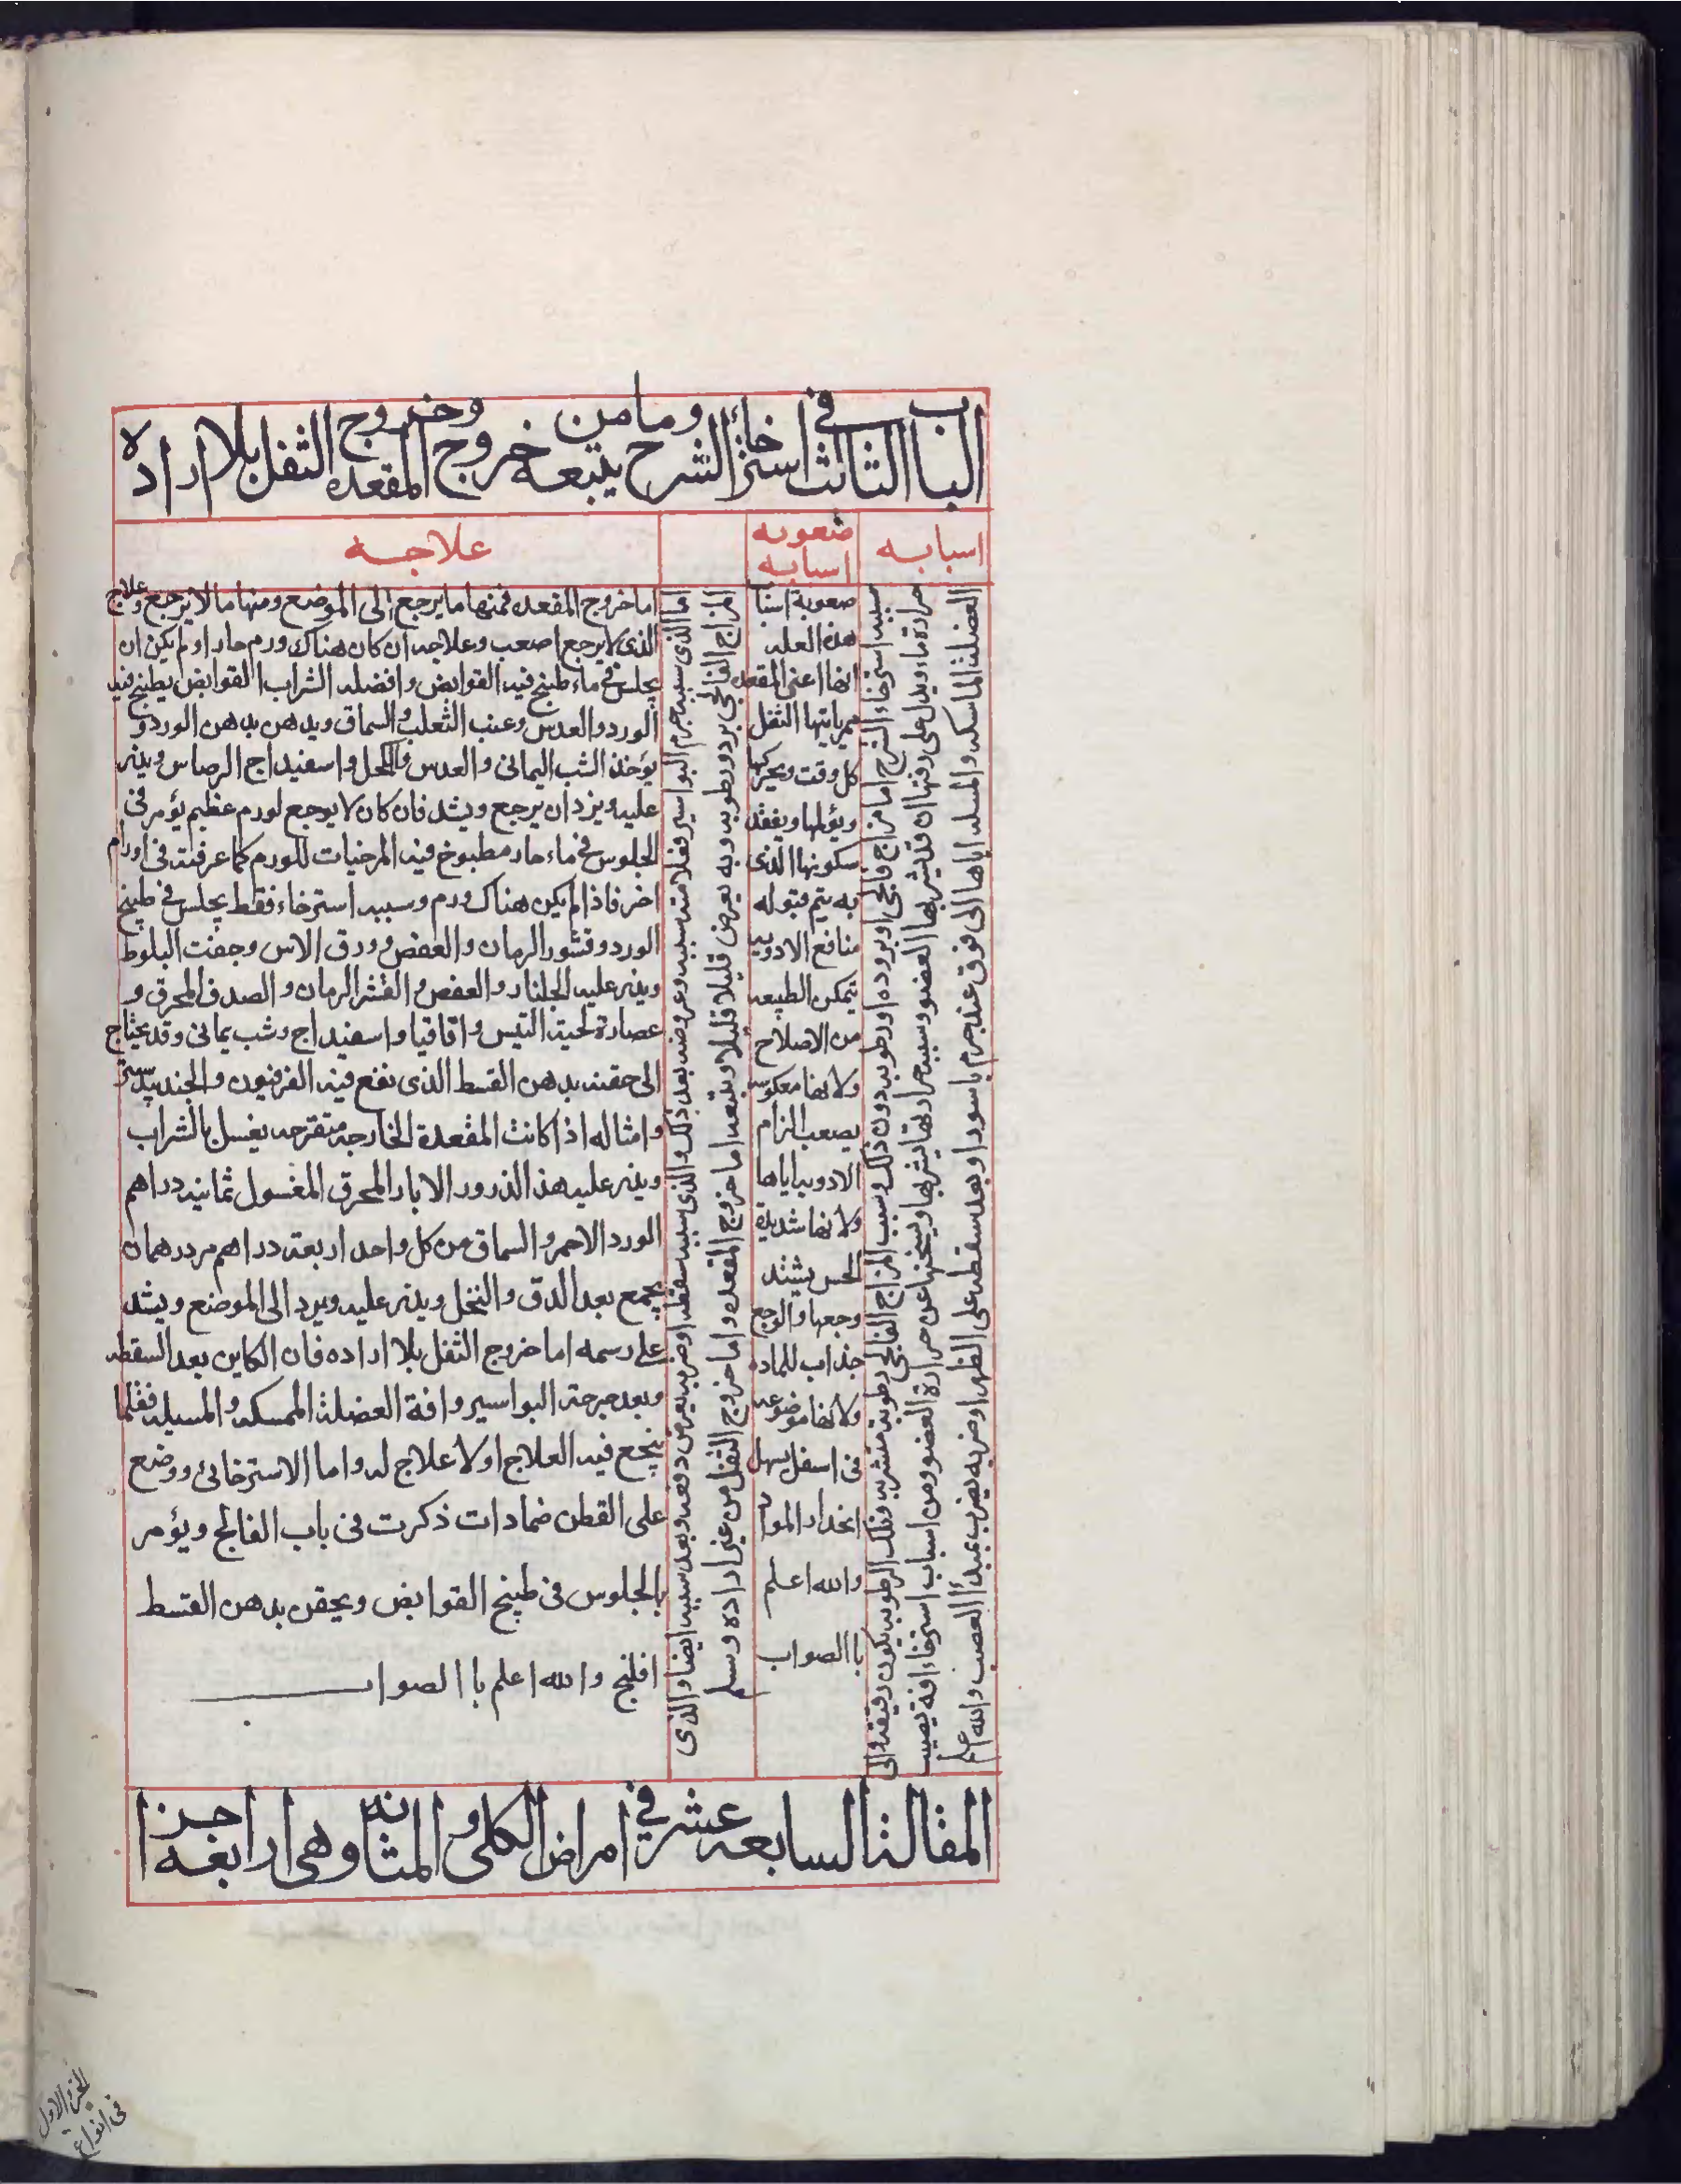 الباب الثالث في استرخاء الشرج وما من يتبعه خروج المقعده وخروج الثفل بلا اراده
اسبابه
صعوبه اسبابه
علاجه
سببه استرخاء الشرج اما مزاج فالجى او بروده او رطوبه دون ذلك وسبب المزاج الفالجى رطوبة متشربه وتلك الرطوبه يكون رقيقه والى
حرارة ماء ويدل على رقتها ان قد تشربها العضو وسبب حرارتها تشربها ويسخنها عن حرارة العضو ومن اسباب استرخاء افة تصيب
العضلة الماسكه والمسله اياها الى فوق عند جرم باسور او بعد سقطه على الظهر او ضربه يضرب بمبدأ العصب والله اعلم
صعوبة اسباب
هذه العله
انها اعنى المقعده
ممر ياتيها الثفل
كل وقت ويحركها
ويؤلمها ويفقد
سكونها الذى
به يتم قبوله
منافع الادويه
بتمكن الطبيعه
من الاصلاح
ولانها معكوسه
يصعب الزام
الادويه اياها
ولانها شديدة
الحس يشتد
وجعها والوجع
جذاب للماده
ولانها موضوعه
فى اسفل يسهل
انحدار المواد
والله اعلم
باالصواب
المزاج الفالجى برد ورطوبه وبه يعرض قليلا قليلا ويتبعه اما خروج المقعده واما خروج الثفل من غير اراده وسلم
اما الذى سببه جرم البواسير فعلامته سببه وعروضه بعد ذلك والذى سببه سقطه او ضربه يعرض دفعه وبعد سببه ايضا والذى
اما خروج المقعده فمنها ما يرجع الى الموضع ومنها ما لا يرجع وعلاج
الذى لا يرجع اصعب وعلاجه ان كان هناك ورم حار او لم يكن ان
يجلس فى ماء طبخ فيه القوابض وافضله الشراب القوابض يطبخ فيه
الورد والعدس وعنب الثعلب والسماق ويدهن بدهن الورد و
يؤخذ الشب اليمانى والعدس والكحل واسفيداج الرصاص ويذر
عليه ويزد ان يرجع ويشد فان كان لا يوجع لورم عظيم يؤمر فى
الجلوس فى ماء حار مطبوخ فيه المرخيات للورم كما عرفته فى اورام
اخر فاذا لم يكن هناك ورم وسببه استرخاء فقط يجلس فى طبخ
الورد وقشور الرمان والعفص وورق الاس وجفت البلوط
ويذر عليه الجلنار والعفص والقشر الرمان والصدف المحرق و
عصارة لحية التيس واقاقيا واسفيداج وشب يمانى وقد يحتاج
الى حقنه بدهن القسط الذى نفع فيه الفرفيون والجندبيدستر
وامثاله اذا كانت المقعدة الخارجه متقرحه يغسل بالشراب
ويذر عليه هذا الذرور الابار المحرق المغسول ثمانيه دراهم
الورد الاحمر والسماق من كل واحد اربعة دراهم مر درهمان
يجمع بعد الدق والنخل ويذر عليه ويرد الى الموضع ويشد
على رسمه اما خروج الثفل بلا اراده فان الكاين بعد السقطه
وبعد جرحة البواسير وافة العضلة الممسكه والمسيله فقلما
ينجع فيه العلاج اولا علاج له واما الاسترخائى ووضع
على القطن ضمادات ذكرت فى باب الفالج ويؤمر
بالجلوس فى طبخ القوابض ويحقن بدهن القسط
افلنج والله اعلم باالصواب
المقالة السابعه عشر في امراض الكلى والمثانه وهى اربعه اجزا
الجزء الاول
فى انواع